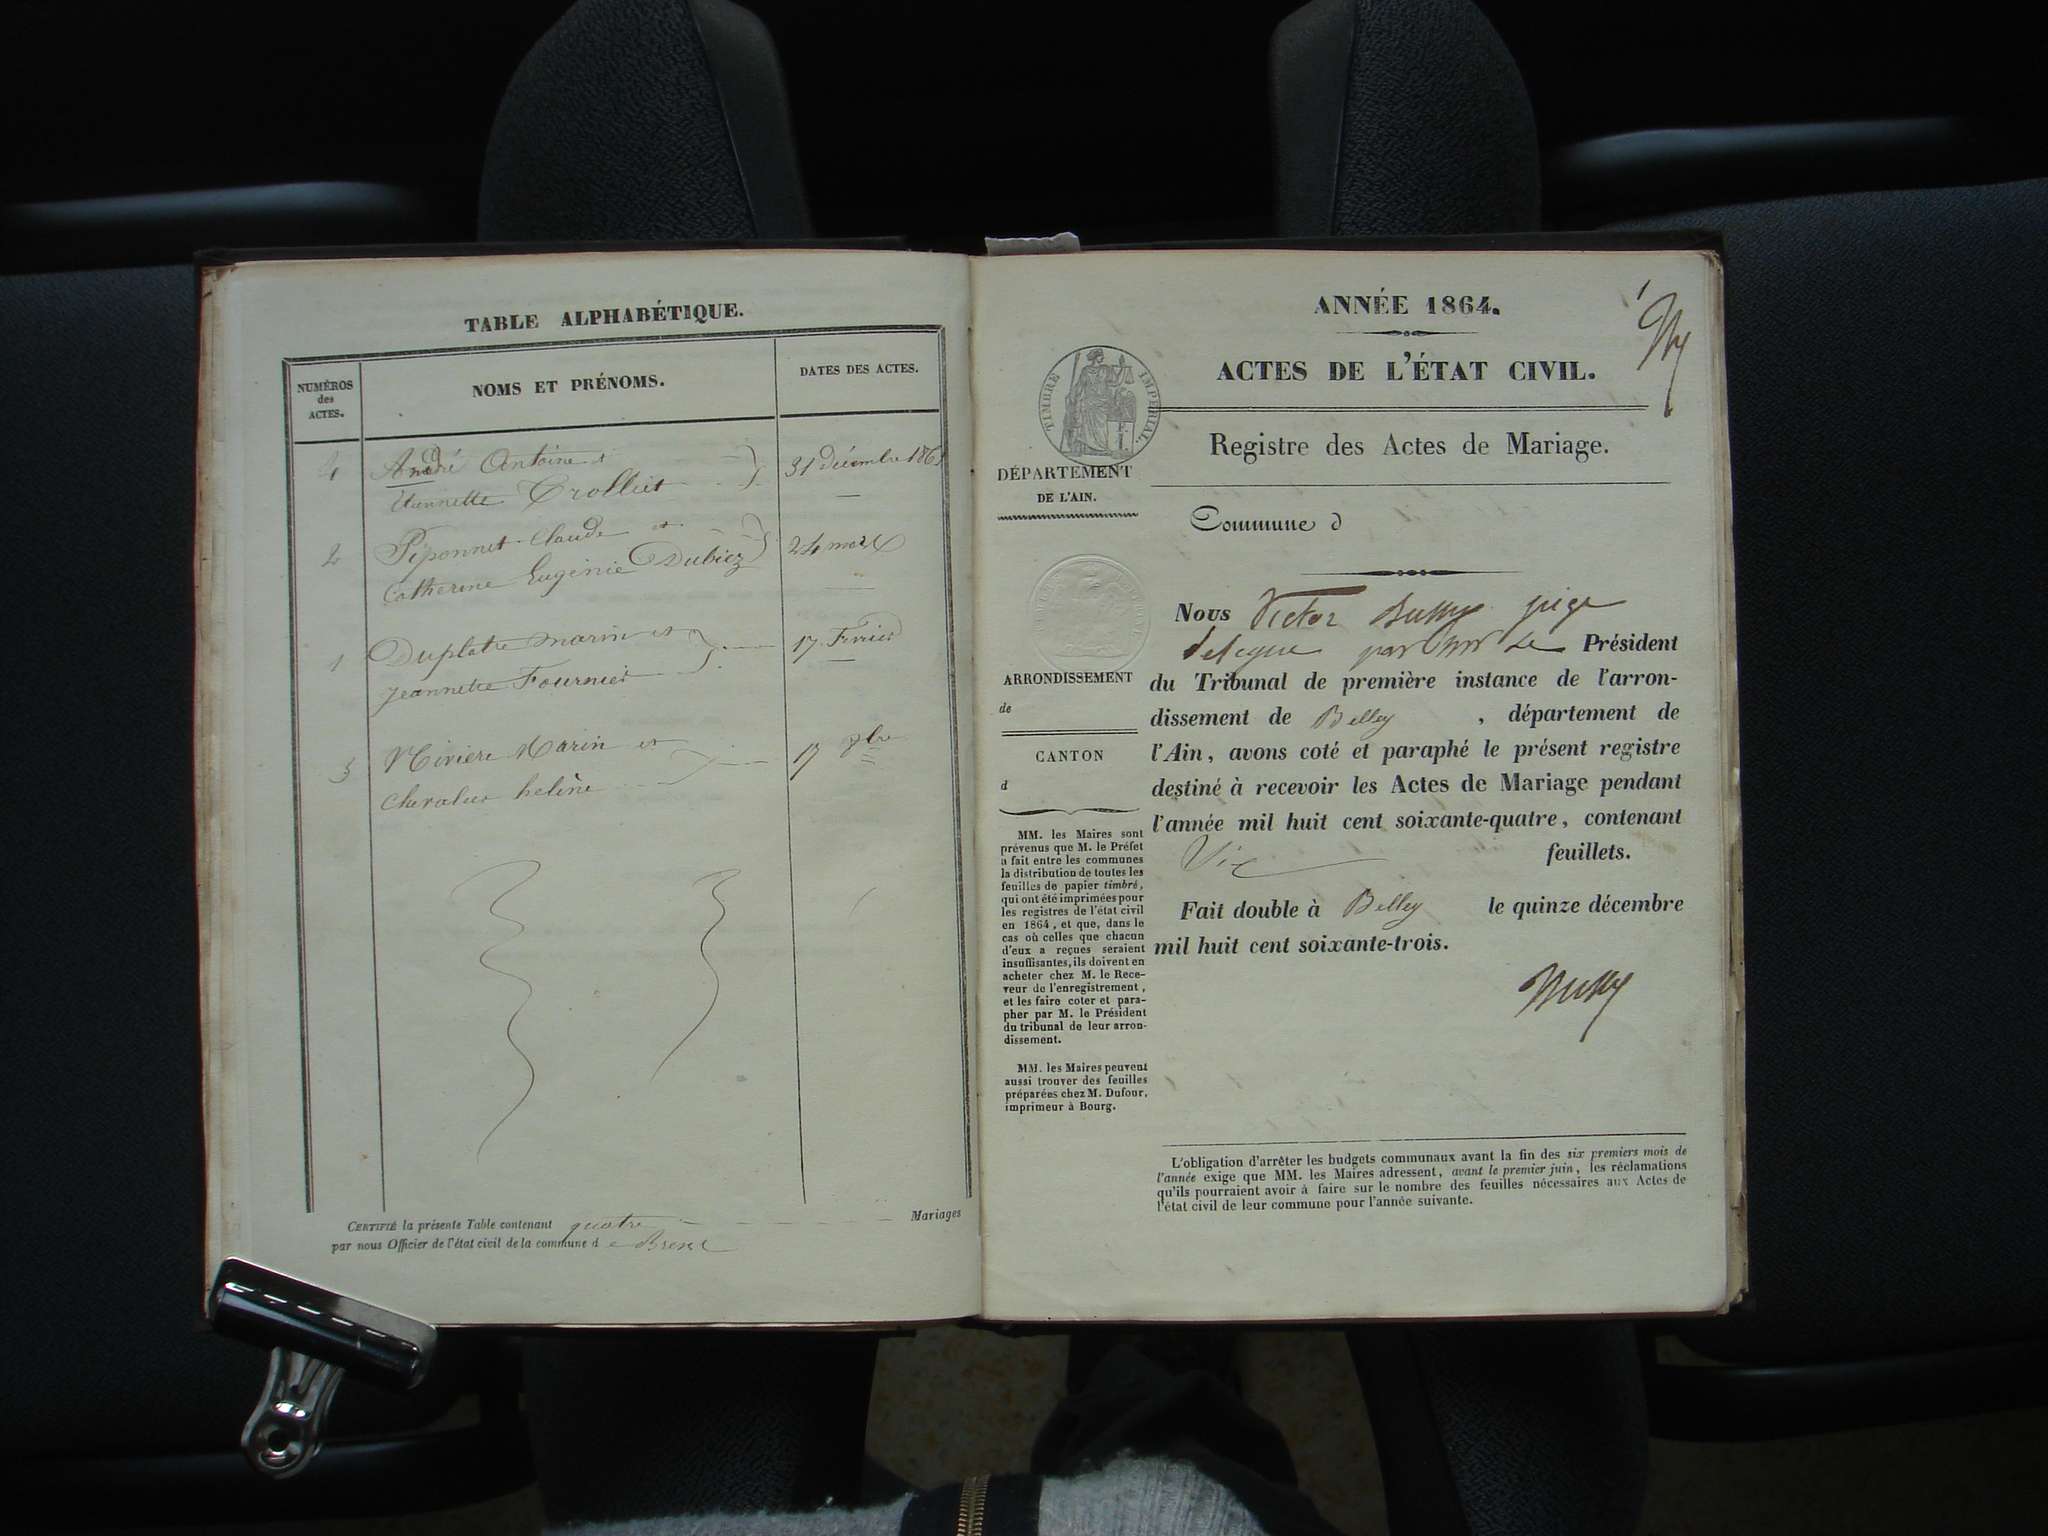 TABLE ALPHABÉTIQUE.
NUMÉROS
des
ACTES.
NOMS ET PRÉNOMS.
DATES DES ACTES.
4 André Antoine et 31 décembre 186
Trolliet
2 Péponnet Claude et 24 mars
Catherine Eugénie Dubiez
1 Duplatre Marin et 17 Février
Jeannette Fournier
3 Rivière Marin et 17 9bre
Chevalier helène
CERTIFIÉ la présente Table contenant quatre Mariages
par nous Officier de l'état civil de la commune d e
1
ANNÉE 1864.
ACTES DE L'ÉTAT CIVIL.
Registre des Actes de Mariage.
TIMBRE IMPÉRIAL.
DÉPARTEMENT
DE L'AIN.
Commune d
ARRONDISSEMENT
de
CANTON
d
MM. les Maires sont
prévenus que M. le Préfet
a fait entre les communes
la distribution de toutes les
feuilles de papier timbré,
qui ont été imprimées pour
les registres de l'état civil
en 1864, et que, dans le
cas où celles que chacun
d'eux a reçues seraient
insuffisantes, ils doivent en
acheter chez M. le Rece-
veur de l'enregistrement,
et les faire coter et para-
pher par M. le Président
du tribunal de leur arron-
dissement.
MM. les Maires peuvent
aussi trouver des feuilles
préparées chez M. Dufour,
imprimeur à Bourg.
Nous Victor Bussy juge
délégué par Mr le Président
du Tribunal de première instance de l'arron-
dissement de Belley, département de
l'Ain, avons coté et paraphé le présent registre
destiné à recevoir les Actes de Mariage pendant
l'année mil huit cent soixante-quatre, contenant
feuillets.
Fait double à Belley le quinze décembre
mil huit cent soixante-trois.
Bussy
L'obligation d'arrêter les budgets communaux avant la fin des six premiers mois de
l'année exige que MM. les Maires adressent, avant le premier juin, les réclamations
qu'ils pourraient avoir à faire sur le nombre des feuilles nécessaires aux Actes de
l'état civil de leur commune pour l'année suivante.